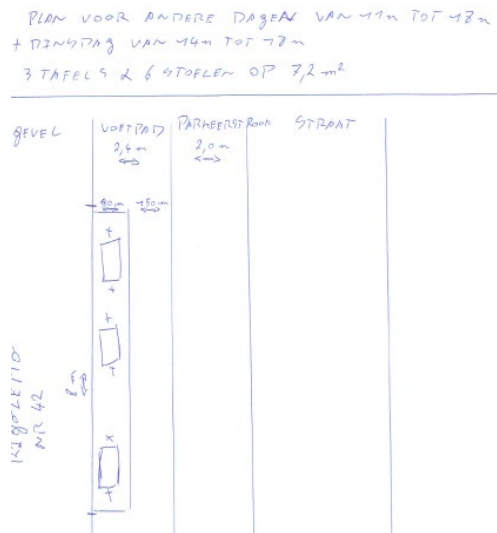 PLAN VOOR ANDERE DAGEN VAN 11u TOT 18u
+ DINSDAG VAN 14u TOT 18u
3 TAFELS & 6 STOELEN OP 7,2 m²
GEVEL VOETPAD PARKEERSTROOK STRAAT
2,4 m 2,0 m
90cm 150cm
8m
NR 42